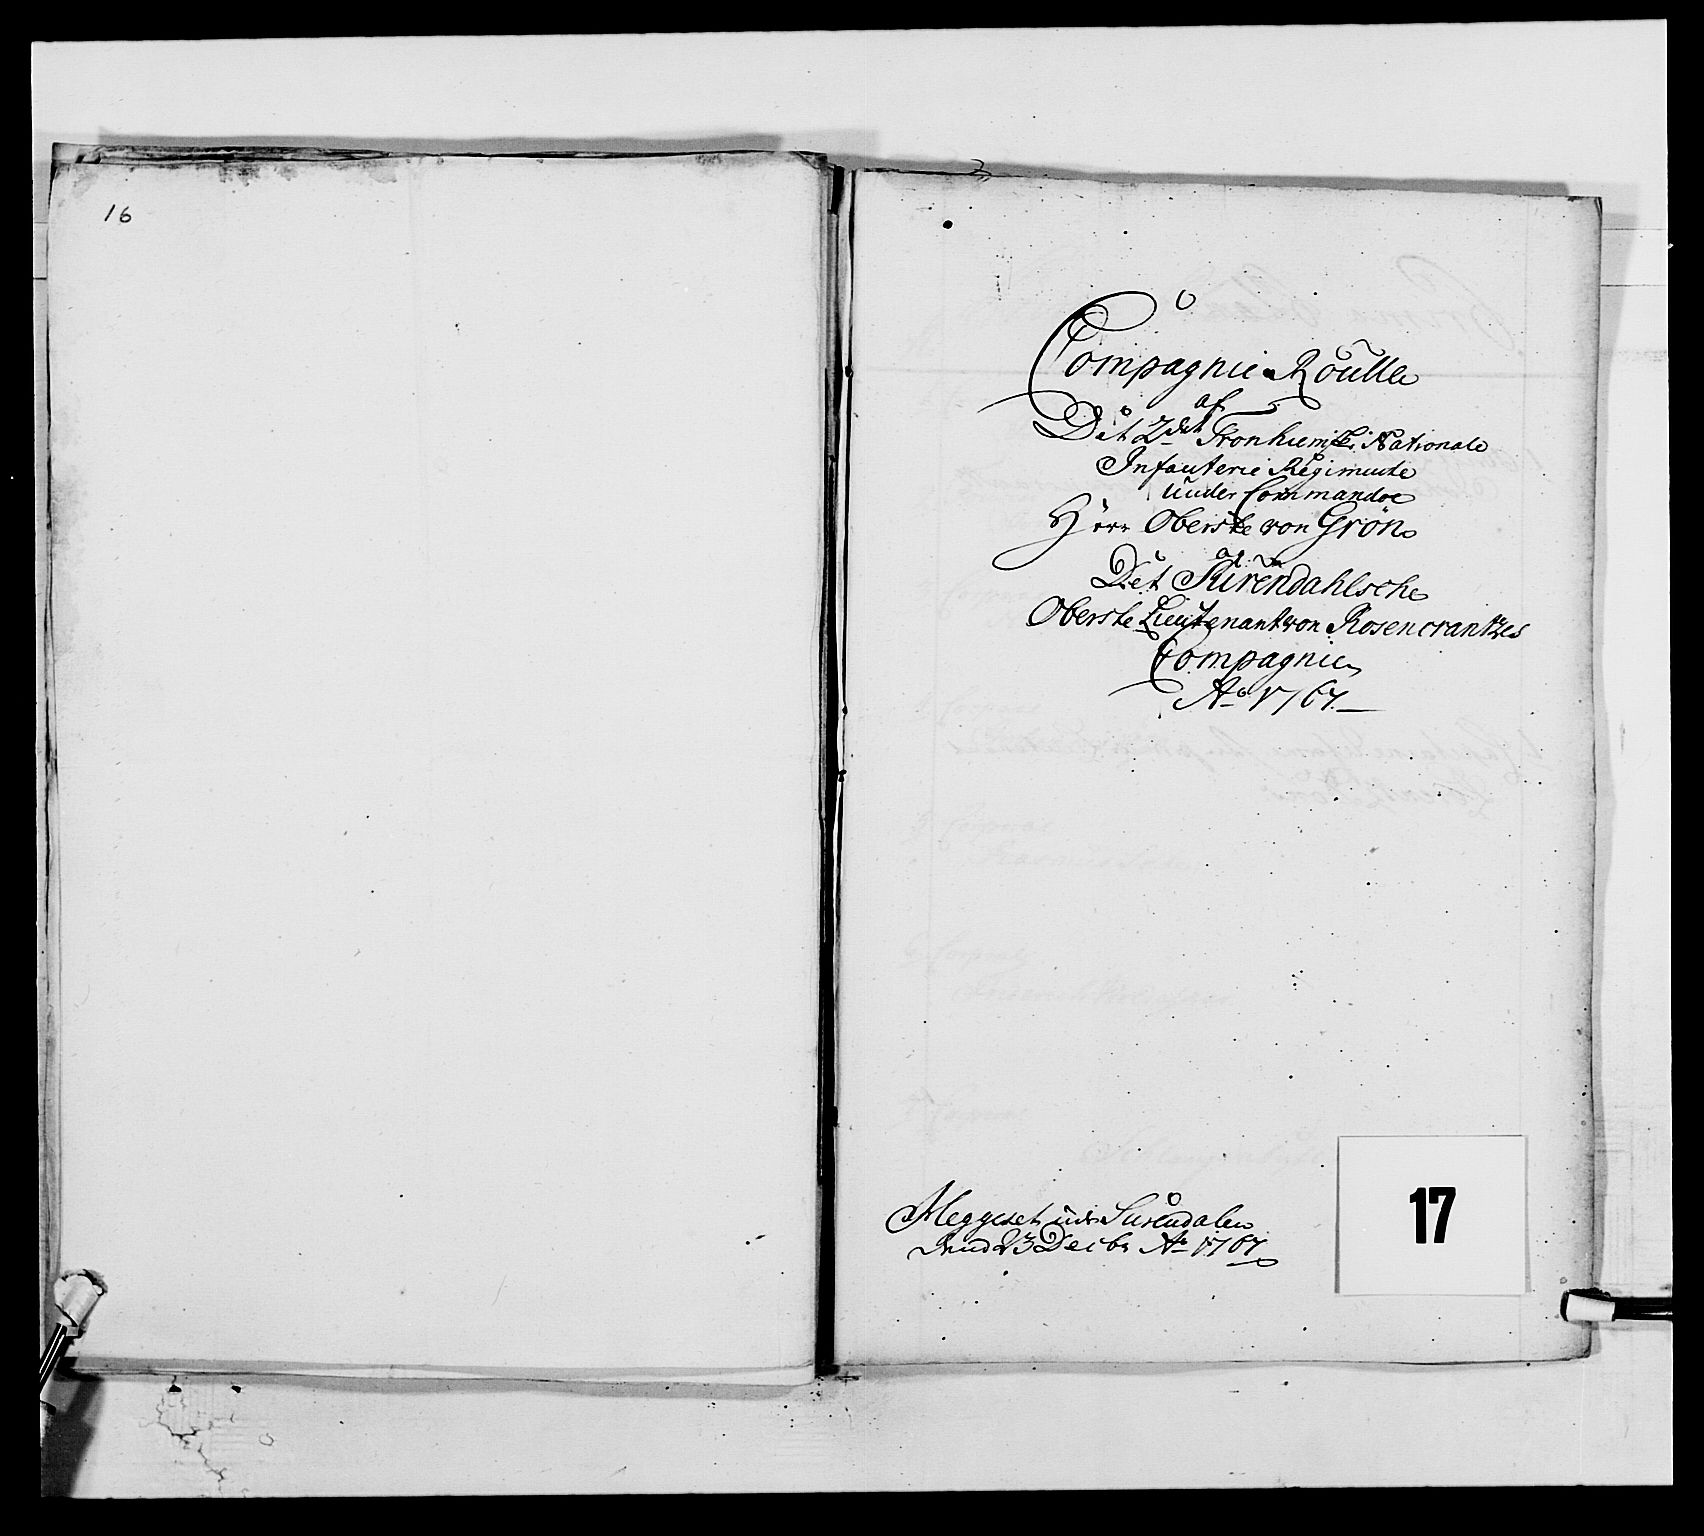 16
Compagnie Roulle
af
Det 2det Tronhiemske Nationale
Infanterie Regimente
under Commandoe
Herr Oberste von Grön
af
Det Sürendahlsche
Oberste Lieutenant von Rosencrantzes
Compagnie
Ao 1767.
Meggeset udi Surendalen
dend 23 Decbr Ao 1767
17